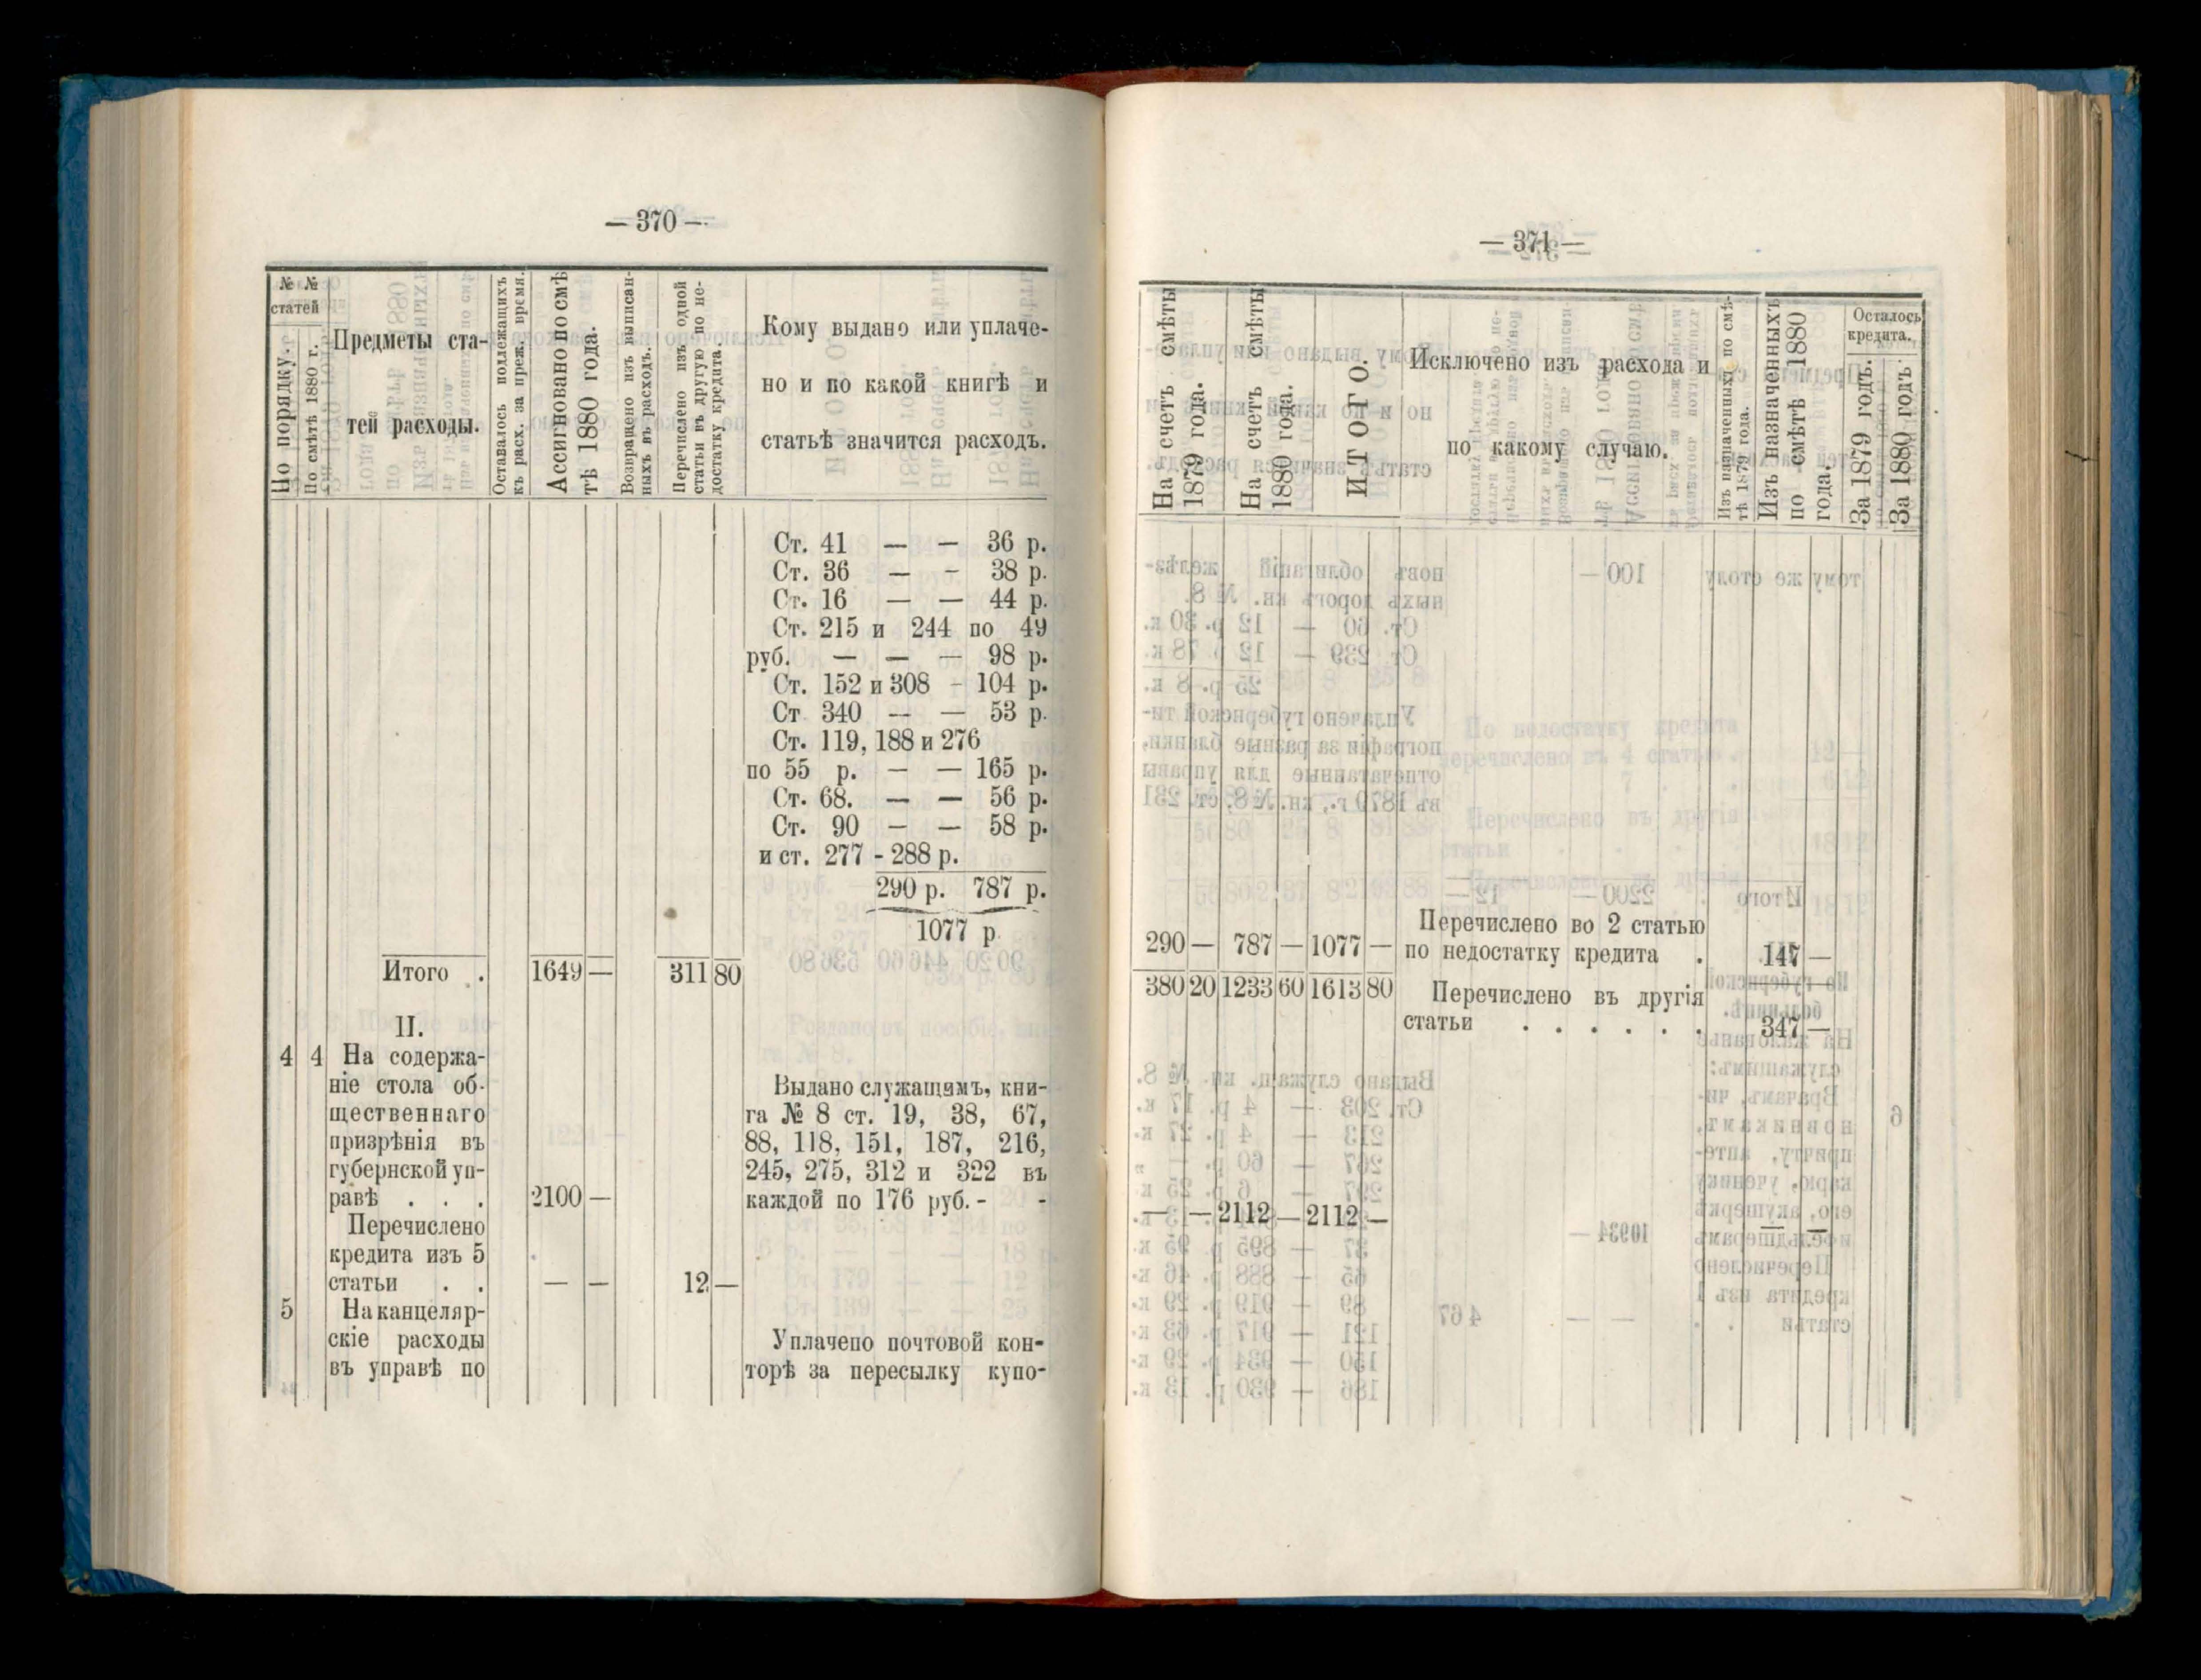 — 370 —
№ № статей
По порядку.
По смѣтѣ 1880 г.
Предметы ста-
тей расходы.
Оставалось подлежащихъ
къ расх. за преж. время.
Ассигновано по смѣ
тѣ 1880 года.
Возвращено изъ выписан-
ныхъ въ расходъ.
Перечислено изъ одной
статьи въ другую по не-
достатку кредита.
Кому выдано или уплаче-
но и по какой книгѣ и
статьѣ значится расходъ.
Ст. 41 — — 36 р.
Ст. 36 — – 38 р.
Ст. 16 — — 44 р.
Ст. 215 и 244 по 49
руб. — — — 98 р.
Ст. 152 и 308 – 104 р.
Ст 340 — — 53 р.
Ст. 119, 188 и 276
по 55 р. — — 165 р.
Ст. 68. — — 56 р.
Ст. 90 — — 58 р.
и ст. 277 - 288 р.
290 р. 787 р.
1077 р
Итого . 1649 — 311 80
II.
4 4 На содержа-
ніе стола об-
щественнаго
призрѣнія въ
губернской уп-
равѣ . . . 2100 —
Перечислено
кредита изъ 5
статьи . . — — 12 —
5 На канцеляр-
скіе расходы
въ управѣ по
Выдано служащимъ, кни-
га № 8 ст. 19, 38, 67,
88, 118, 151, 187, 216,
245, 275, 312 и 322 въ
каждой по 176 руб. - -
Уплачено почтовой кон-
торѣ за пересылку купо-
— 371 —
На счетъ смѣты
1879 года.
На счетъ смѣты
1880 года.
ИТОГО.
Исключено изъ расхода и
по какому случаю.
Изъ назначенныхъ по смѣ-
тѣ 1879 года.
Изъ назначенныхъ
по смѣтѣ 1880
года.
Осталось
кредита.
За 1879 годъ.
За 1880 годъ.
Перечислено во 2 статью
290 — 787 — 1077 — по недостатку кредита . 147 —
380 20 1233 60 1613 80 Перечислено въ другія
статьи . . . . . . 347 —
— — 2112 — 2112 — — —